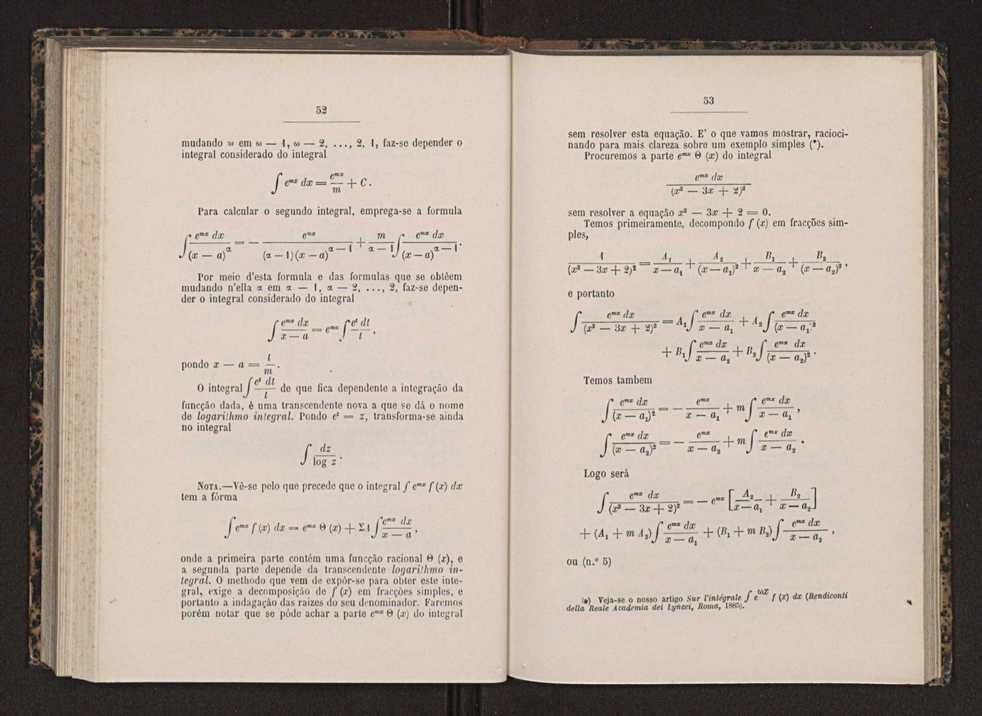 52
mudando ω em ω — 1, ω — 2, ..., 2, 1, faz-se depender o
integral considerado do integral
∫ e^{mx} dx = e^{mx}/m + C.
Para calcular o segundo integral, emprega-se a formula
∫ e^{mx} dx/(x — a)^α = — e^{mx}/((α — 1)(x — a)^{α — 1}) + m/(α — 1) ∫ e^{mx} dx/(x — a)^{α — 1}.
Por meio d'esta formula e das formulas que se obtêem
mudando n'ella α em α — 1, α — 2, ..., 2, faz-se depen-
der o integral considerado do integral
∫ e^{mx} dx/(x — a) = e^{ma} ∫ e^t dt/t,
pondo x — a = t/m.
O integral ∫ e^t dt/t de que fica dependente a integração da
funcção dada, é uma transcendente nova a que se dá o nome
de logarithmo integral. Pondo e^t = z, transforma-se ainda
no integral
∫ dz/log z.
NOTA.—Vê-se pelo que precede que o integral ∫ e^{mx} f (x) dx
tem a fórma
∫ e^{mx} f (x) dx = e^{mx} Θ (x) + ΣA ∫ e^{mx} dx/(x — a),
onde a primeira parte contém uma funcção racional Θ (x), e
a segunda parte depende da transcendente logarithmo in-
tegral. O methodo que vem de expôr-se para obter este inte-
gral, exige a decomposição de f (x) em fracções simples, e
portanto a indagação das raizes do seu denominador. Faremos
porém notar que se póde achar a parte e^{mx} Θ (x) do integral
53
sem resolver esta equação. E' o que vamos mostrar, racioci-
nando para mais clareza sobre um exemplo simples (*).
Procuremos a parte e^{mx} Θ (x) do integral
e^{mx} dx/(x² — 3x + 2)²
sem resolver a equação x² — 3x + 2 = 0.
Temos primeiramente, decompondo f (x) em fracções sim-
ples,
1/(x² — 3x + 2)² = A₁/(x — a₁) + A₂/(x — a₁)² + B₁/(x — a₂) + B₂/(x — a₂)²,
e portanto
∫ e^{mx} dx/(x² — 3x + 2)² = A₁ ∫ e^{mx} dx/(x — a₁) + A₂ ∫ e^{mx} dx/(x — a₁)²
+ B₁ ∫ e^{mx} dx/(x — a₂) + B₂ ∫ e^{mx} dx/(x — a₂)².
Temos tambem
∫ e^{mx} dx/(x — a₁)² = — e^{mx}/(x — a₁) + m ∫ e^{mx} dx/(x — a₁),
∫ e^{mx} dx/(x — a₂)² = — e^{mx}/(x — a₂) + m ∫ e^{mx} dx/(x — a₂).
Logo será
∫ e^{mx} dx/(x² — 3x + 2)² = — e^{mx} [A₂/(x — a₁) + B₂/(x — a₂)]
+ (A₁ + m A₂) ∫ e^{mx} dx/(x — a₁) + (B₁ + m B₂) ∫ e^{mx} dx/(x — a₂),
ou (n.º 5)
(*) Veja-se o nosso artigo Sur l'intégrale ∫ e^{ωx} f (x) dx (Rendiconti
della Reale Academia dei Lyncei, Roma,